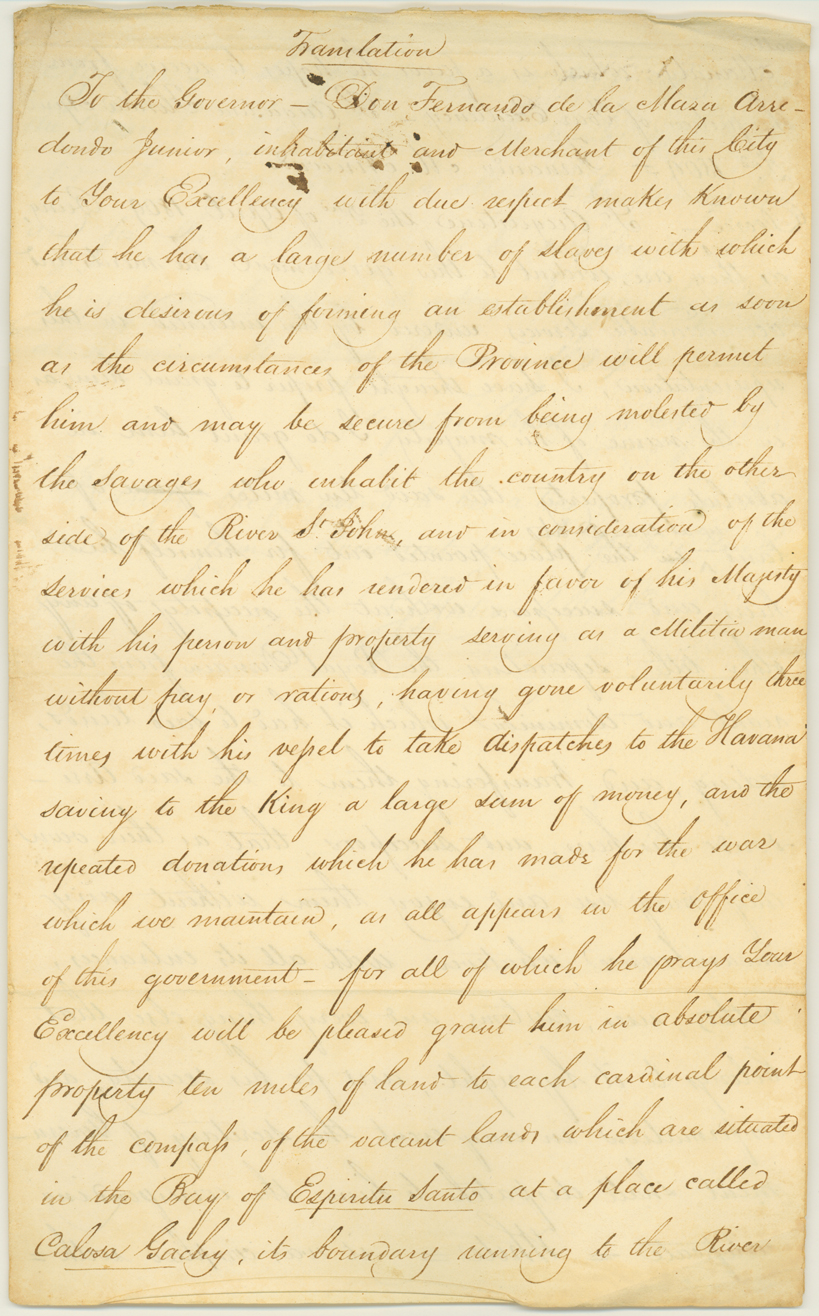 Translation
To the Governor – Don Fernando de la Maza Arre-
dondo Junior, inhabitant and Merchant of this City
to Your Excellency with due respect makes Known
that he has a large number of slaves with which
he is desirous of forming an establishment as soon
as the circumstances of the Province will permit
him and may be secure from being molested by
the savages who inhabit the country on the other
side of the River St. John, and in consideration of the
services which he has rendered in favor of his Majesty
with his person and property serving as a Militia man
without pay or rations, having gone voluntarily three
times with his vessel to take dispatches to the Havana
saving to the King a large sum of money, and the
repeated donations which he has made for the war
which we maintain, as all appears in the office
of this government – for all of which he prays Your
Excellency will be pleased grant him in absolute
property ten miles of land to each cardinal point
of the compass, of the vacant lands which are situated
in the Bay of Espiritu Santo at a place called
Calosa Gachy, its boundary running to the River